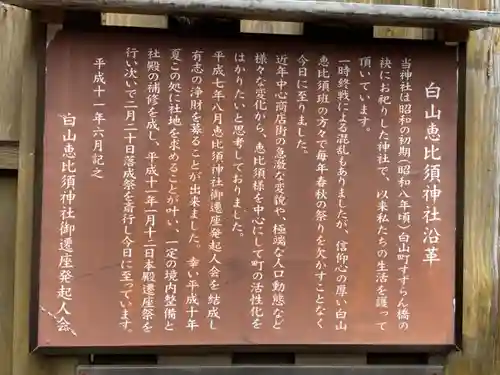 白山恵比須神社沿革
当神社は昭和の初期（昭和八年頃）白山町すずらん橋の
袂にお祀りした神社で、以来私たちの生活を護って
頂いています。
一時終戦による混乱もありましたが、信仰心の厚い白山
恵比須班の方々で毎年春秋の祭りを欠かすことなく
今日に至りました。
近年中心商店街の急激な変貌や、極端な人口動態など
様々な変化から、恵比須様を中心にして町の活性化を
はかりたいと思考しておりました。
平成七年八月恵比須神社御遷座発起人会を結成し
有志の浄財を募ることが出来ました。幸い平成十年
夏この処に社地を求めることが叶い、一定の境内整備と
社殿の補修を成し、平成十一年一月十二日本殿遷座祭を
行い次いで二月二十日落成祭を斎行し今日に至っています。
平成十一年六月記之
白山恵比須神社御遷座発起人会